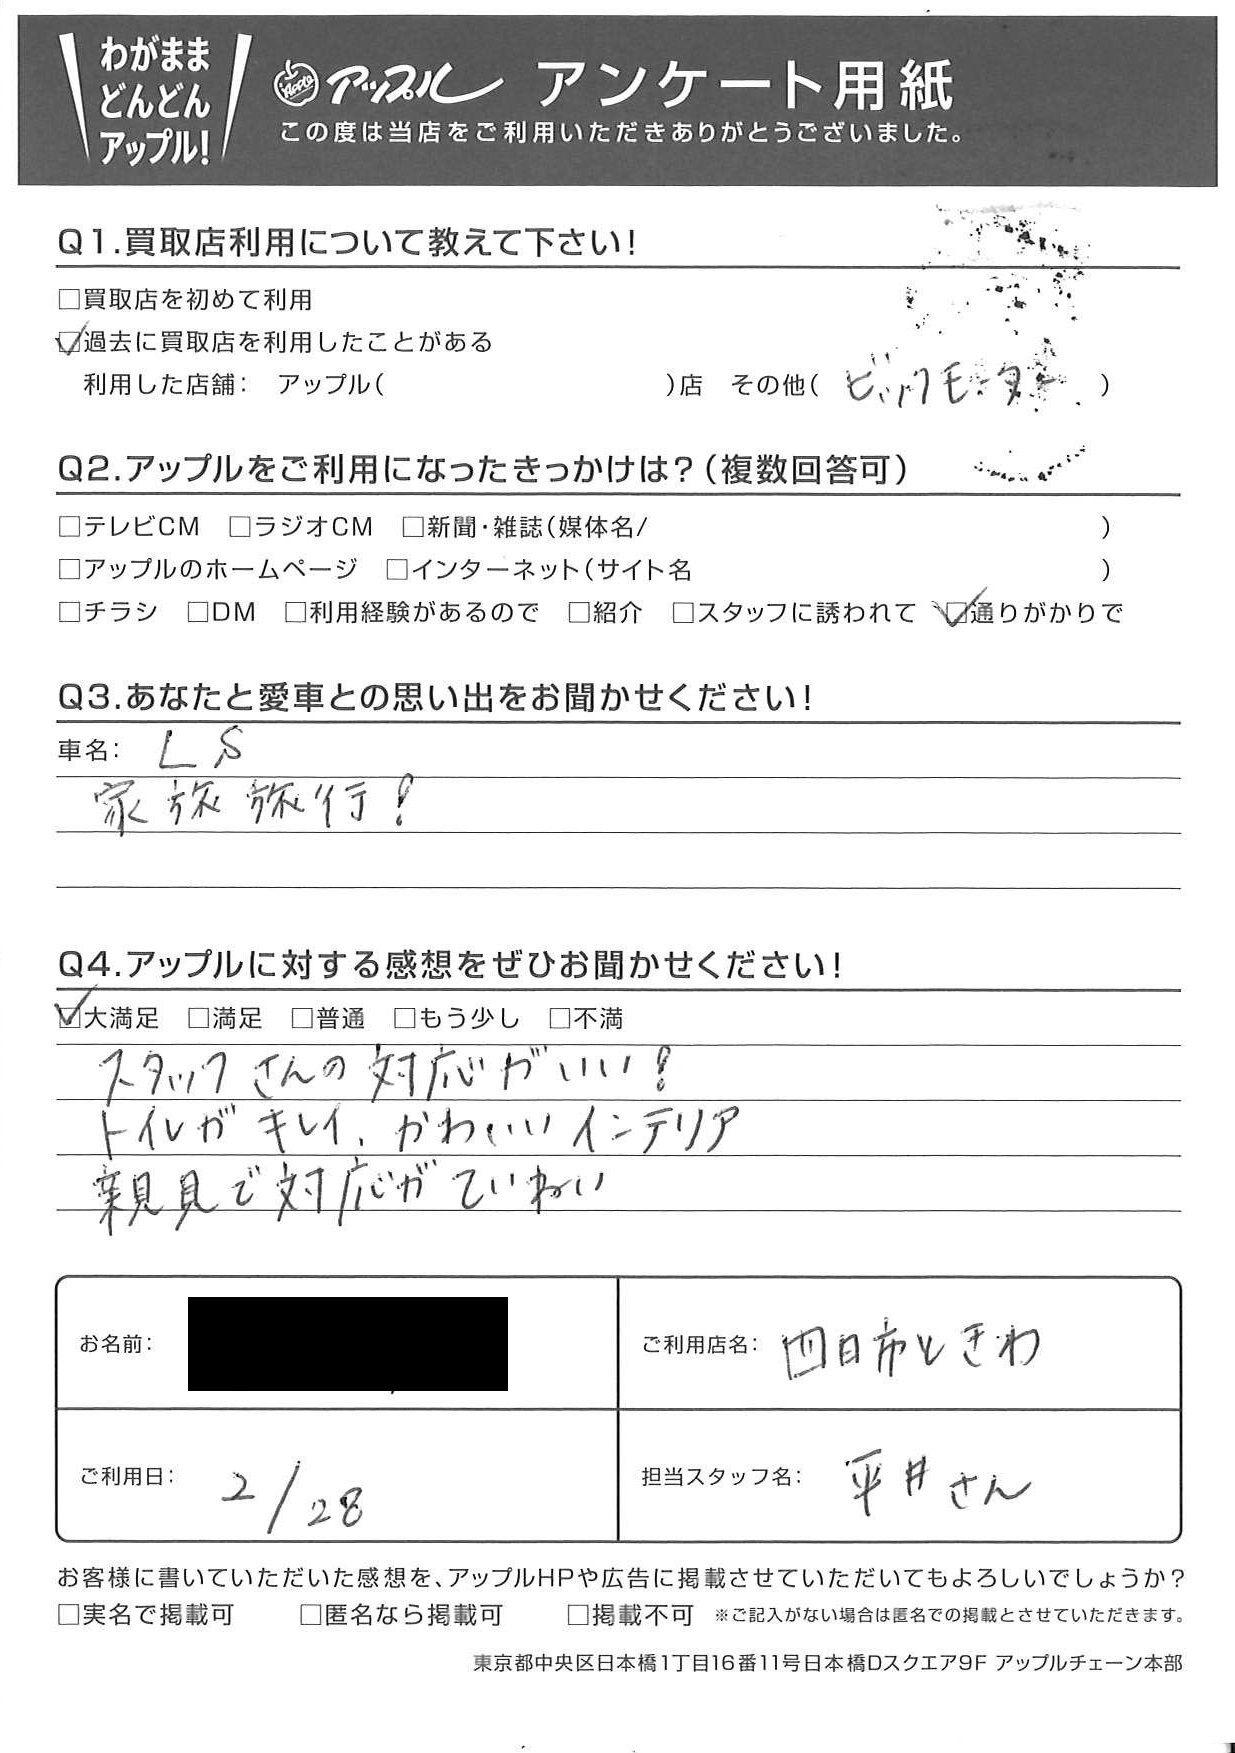 わがまま
どんどん
アップル!
Apple アップル アンケート用紙
この度は当店をご利用いただきありがとうございました。
Q1.買取店利用について教えて下さい!
□買取店を初めて利用
☑過去に買取店を利用したことがある
利用した店舗: アップル( )店 その他( ビックモーター )
Q2.アップルをご利用になったきっかけは?(複数回答可)
□テレビCM □ラジオCM □新聞・雑誌(媒体名/ )
□アップルのホームページ □インターネット(サイト名 )
□チラシ □DM □利用経験があるので □紹介 □スタッフに誘われて ☑通りがかりで
Q3.あなたと愛車との思い出をお聞かせください!
車名: LS
家族旅行!
Q4.アップルに対する感想をぜひお聞かせください!
☑大満足 □満足 □普通 □もう少し □不満
スタッフさんの対応がいい!
トイレがキレイ、かわいいインテリア
親見で対応がていねい
お名前:
ご利用店名: 四日市ときわ
ご利用日: 2/28
担当スタッフ名: 平井さん
お客様に書いていただいた感想を、アップルHPや広告に掲載させていただいてもよろしいでしょうか?
□実名で掲載可 □匿名なら掲載可 □掲載不可 ※ご記入がない場合は匿名での掲載とさせていただきます。
東京都中央区日本橋1丁目16番11号日本橋Dスクエア9F アップルチェーン本部